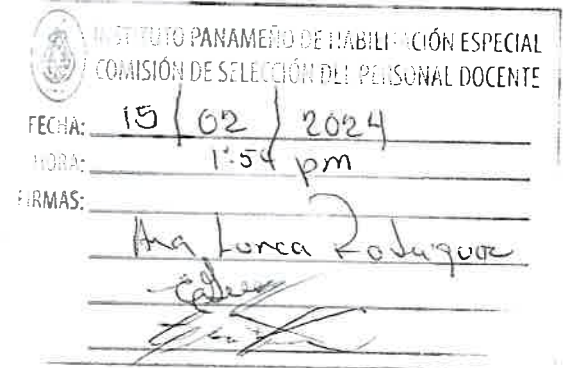 INSTITUTO PANAMEÑO DE HABILITACIÓN ESPECIAL
COMISIÓN DE SELECCIÓN DEL PERSONAL DOCENTE
FECHA: 15/02/2024
HORA: 1:54 pm
FIRMAS:
Ana Lorca Rodríguez